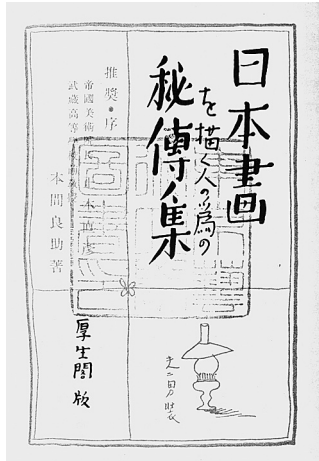 日本畫
を描く人の爲の
秘傳集
推奬・序
帝國美術
武蔵高等
木直彦
本間良助著
厚生閣版